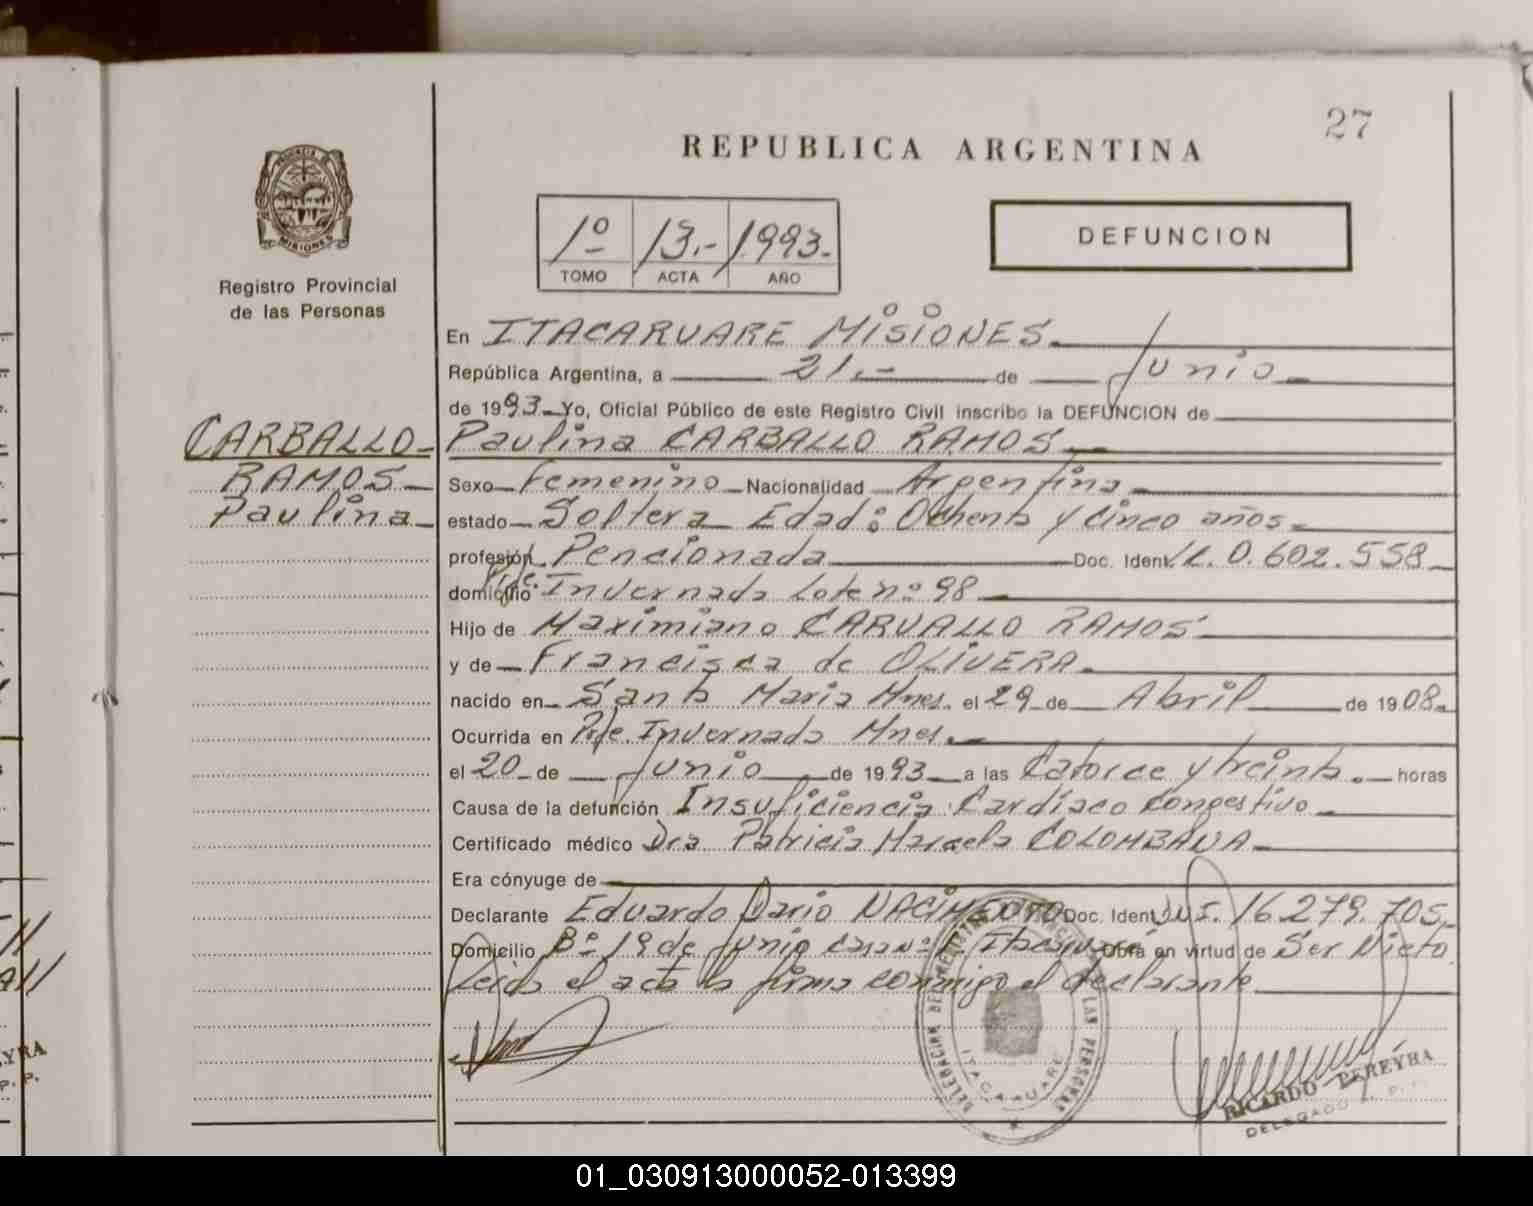 27
REPUBLICA ARGENTINA
PROVINCIA DE
MISIONES
Registro Provincial
de las Personas
1º 13.- 1993.-
TOMO ACTA AÑO
DEFUNCION
En ITACARUARE MISIONES.
República Argentina, a 21.- de Junio
de 1993 Yo, Oficial Público de este Registro Civil inscribo la DEFUNCION de
CARBALLO
RAMOS
Paulina
Paulina CARBALLO RAMOS
Sexo Femenino Nacionalidad Argentina
estado Soltera Edad: Ochenta y cinco años
profesión Pencionada Doc. Ident. L.C. 0.602.558
domicilio Pje. Invernada Lote nº 98
Hijo de Maximiano CARVALLO RAMOS
y de Francisca de OLIVERA
nacido en Santa Maria Mnes. el 29 de Abril de 1908.
Ocurrida en Pje. Invernada Mnes.
el 20 de Junio de 1993 a las Catorce y treinta. horas
Causa de la defunción Insuficiencia Cardiaco Congestivo
Certificado médico Dra Patricia Marcela COLOMBANA
Era cónyuge de
Declarante Eduardo Dario NACIMENTO Doc. Ident. 16.279.705
Domicilio Bº 19 de Junio casa nº Itacaruaré Obra en virtud de Ser Nieto
Leida el acta la firma conmigo el declarante
DELEGACION DEL REGISTRO PROVINCIAL DE LAS PERSONAS
ITACARUARE
RICARDO PEREYRA
DELEGADO R. P. P.
YRA
P. P.
01_030913000052-013399